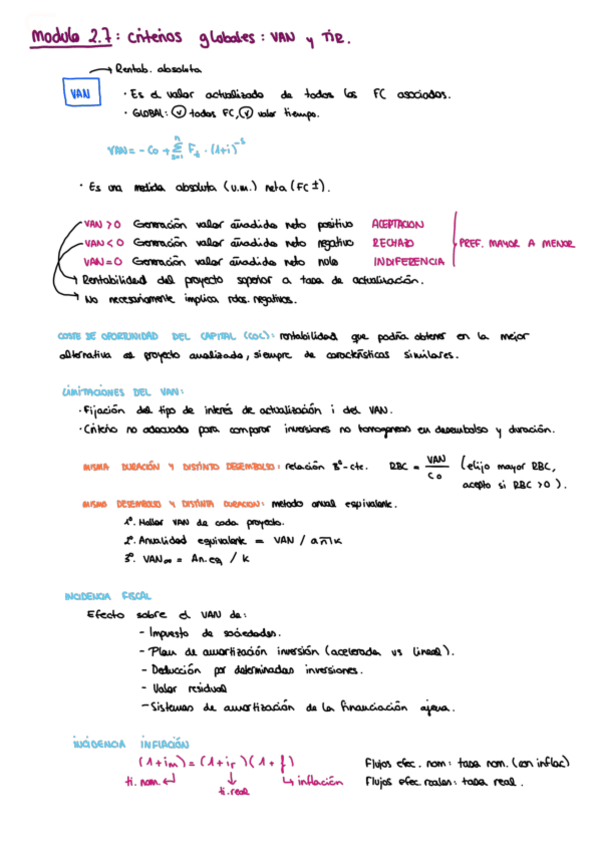 Modulo 2.7: criterios globales: VAN y TIR.
→ Rentab. absoluta
VAN
· Es el valor actualizado de todos los FC asociados.
· GLOBAL: Ⓥ todos FC, Ⓥ valor tiempo.
VAN = - Co + Σ Ft · (1+i)^-t
· Es una medida absoluta (u.m.) neta (FC ±).
VAN > 0 Generación valor añadido neto positivo ACEPTACION
VAN < 0 Generación valor añadido neto negativo RECHAZO
PREF. MAYOR A MENOR
VAN = 0 Generación valor añadido neto nulo INDIFERENCIA
→ Rentabilidad del proyecto superior a tasa de actualización.
→ No necesariamente implica rdos. negativos.
COSTE DE OPORTUNIDAD DEL CAPITAL (COC): rentabilidad que podría obtener en la mejor
alternativa al proyecto analizado, siempre de características similares.
LIMITACIONES DEL VAN:
· Fijación del tipo de interés de actualización i del VAN.
· Criterio no adecuado para comparar inversiones no homogeneas en desembolso y duración.
MISMA DURACIÓN Y DISTINTO DESEMBOLSO: relación Bº-cte. RBC = VAN / Co (elijo mayor RBC,
acepto si RBC > 0).
MISMO DESEMBOLSO Y DISTINTA DURACION: método anual equivalente.
1º. Hallar VAN de cada proyecto.
2º. Anualidad equivalente = VAN / a n̅| k
3º. VAN∞ = An.eq / k
INCIDENCIA FISCAL
Efecto sobre el VAN de:
- Impuesto de sociedades.
- Plan de amortización inversión (acelerada vs lineal).
- Deducción por determinadas inversiones.
- Valor residual
- Sistemas de amortización de la financiación ajena.
INCIDENCIA INFLACIÓN
(1+im) = (1+ir)(1+f) Flujos efec. nom: tasa nom. (con inflac)
ti. nom. ↵ ↓ ↳ inflación Flujos efec. reales: tasa real.
ti. real